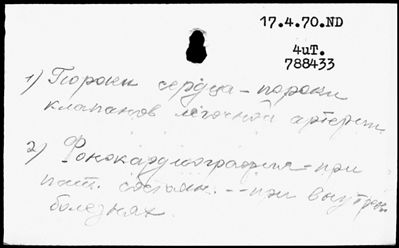 17.4.70.ND
4иТ.
788433
1) Пороки сердца - пороки
клапанов легочной артерии
2) Фонокардиография - при
пат. состоян. -- при внутрен
болезнях.